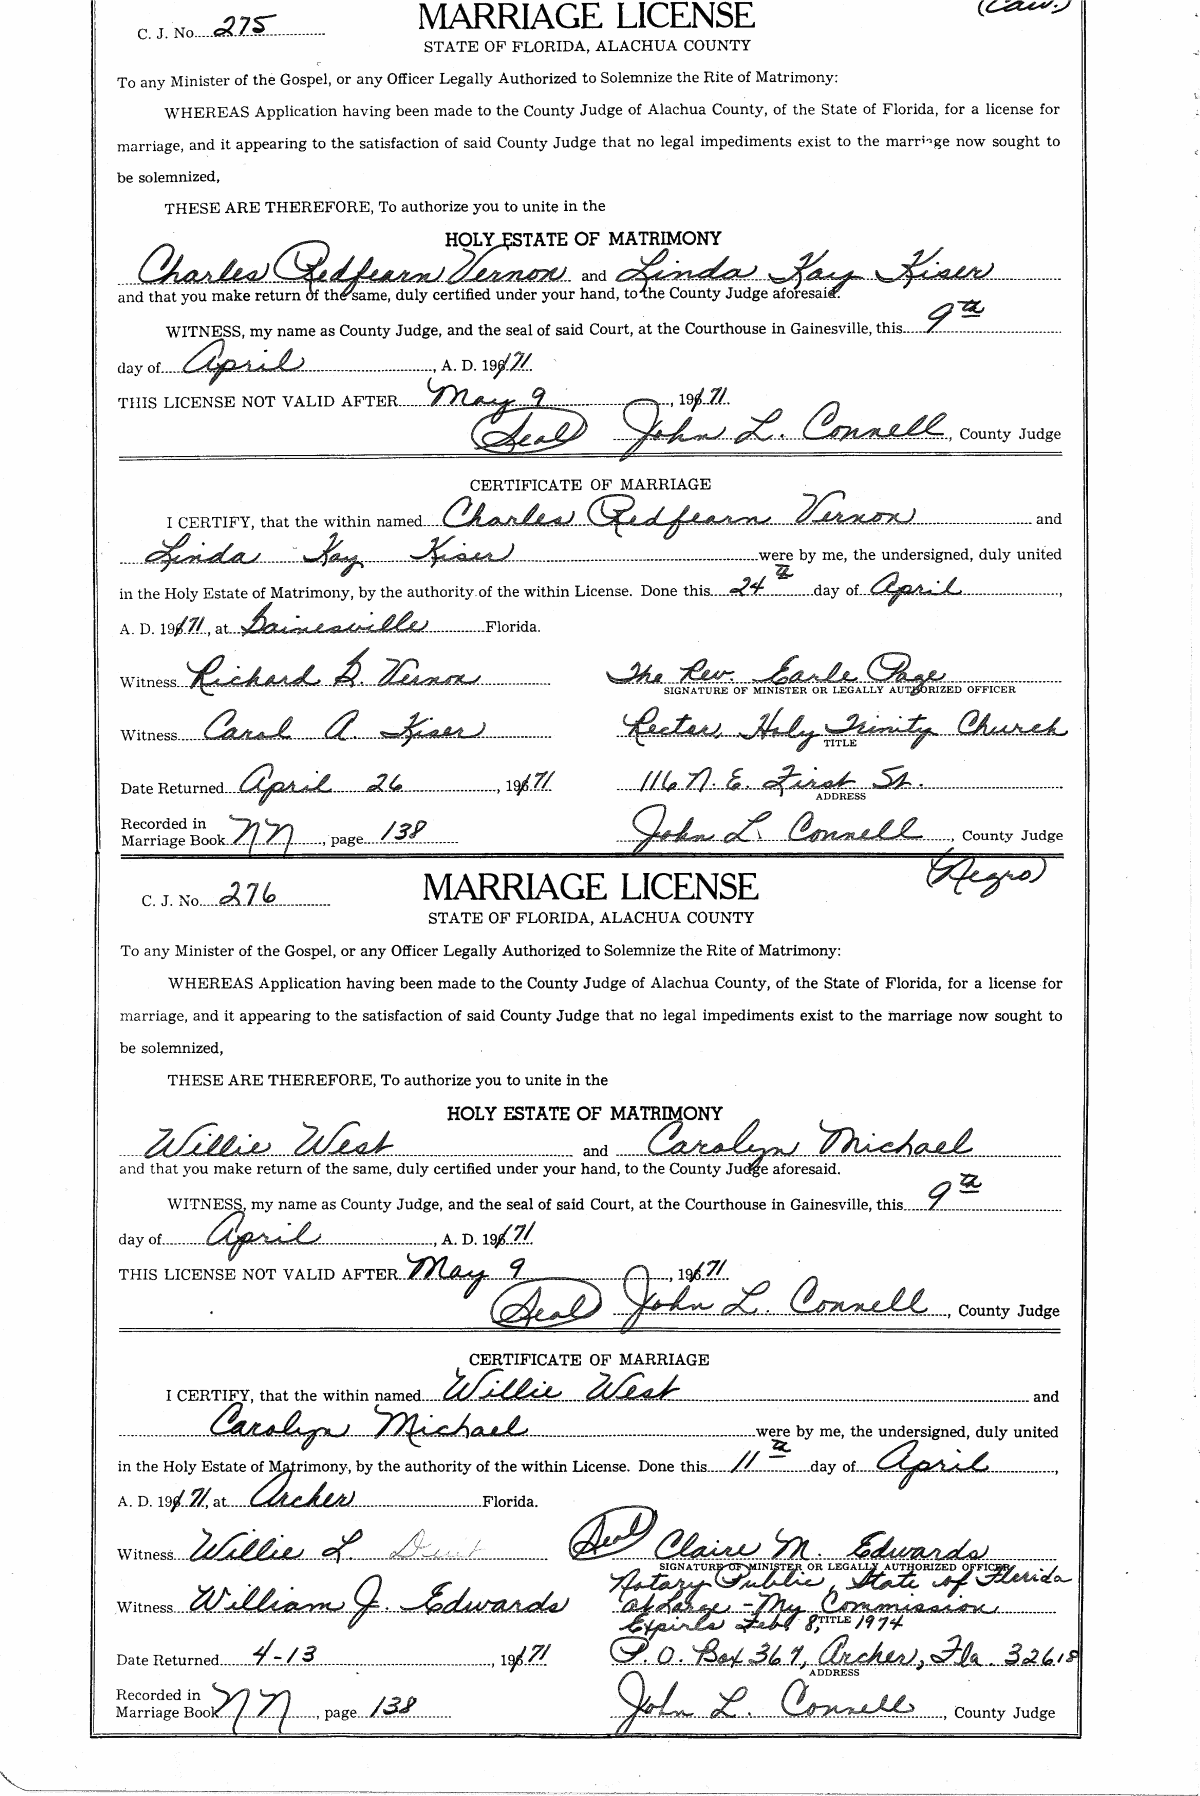 (Cau.)
C. J. No. 275 MARRIAGE LICENSE
STATE OF FLORIDA, ALACHUA COUNTY
To any Minister of the Gospel, or any Officer Legally Authorized to Solemnize the Rite of Matrimony:
WHEREAS Application having been made to the County Judge of Alachua County, of the State of Florida, for a license for
marriage, and it appearing to the satisfaction of said County Judge that no legal impediments exist to the marriage now sought to
be solemnized,
THESE ARE THEREFORE, To authorize you to unite in the
HOLY ESTATE OF MATRIMONY
Charles Redfearn Vernon and Linda Kay Kiser
and that you make return of the same, duly certified under your hand, to the County Judge aforesaid.
WITNESS, my name as County Judge, and the seal of said Court, at the Courthouse in Gainesville, this 9th
day of April, A. D. 1971.
THIS LICENSE NOT VALID AFTER May 9, 1971.
(Seal) John L. Connell, County Judge
CERTIFICATE OF MARRIAGE
I CERTIFY, that the within named Charles Redfearn Vernon and
Linda Kay Kiser were by me, the undersigned, duly united
in the Holy Estate of Matrimony, by the authority of the within License. Done this 24th day of April,
A. D. 1971, at Gainesville Florida.
Witness Richard B Vernon The Rev. Earle Page
SIGNATURE OF MINISTER OR LEGALLY AUTHORIZED OFFICER
Witness Carol A. Kiser Rector, Holy Trinity Church
TITLE
Date Returned April 26, 1971 116 N. E. First St.
ADDRESS
Recorded in
Marriage Book NN, page 138 John L. Connell, County Judge
(Negro)
C. J. No. 276 MARRIAGE LICENSE
STATE OF FLORIDA, ALACHUA COUNTY
To any Minister of the Gospel, or any Officer Legally Authorized to Solemnize the Rite of Matrimony:
WHEREAS Application having been made to the County Judge of Alachua County, of the State of Florida, for a license for
marriage, and it appearing to the satisfaction of said County Judge that no legal impediments exist to the marriage now sought to
be solemnized,
THESE ARE THEREFORE, To authorize you to unite in the
HOLY ESTATE OF MATRIMONY
Willie West and Carolyn Michael
and that you make return of the same, duly certified under your hand, to the County Judge aforesaid.
WITNESS, my name as County Judge, and the seal of said Court, at the Courthouse in Gainesville, this 9th
day of April, A. D. 1971.
THIS LICENSE NOT VALID AFTER May 9, 1971.
(Seal) John L. Connell, County Judge
CERTIFICATE OF MARRIAGE
I CERTIFY, that the within named Willie West and
Carolyn Michael were by me, the undersigned, duly united
in the Holy Estate of Matrimony, by the authority of the within License. Done this 11th day of April,
A. D. 1971, at Archer Florida.
Witness Willie L. (Seal) Claire M. Edwards
SIGNATURE OF MINISTER OR LEGALLY AUTHORIZED OFFICER
Notary Public, State of Florida
Witness William J. Edwards at Large - My Commission
Expires Feb. 8, 1974
TITLE
Date Returned 4-13, 1971 P. O. Box 367, Archer, Fla. 32618
ADDRESS
Recorded in
Marriage Book NN, page 138 John L. Connell, County Judge